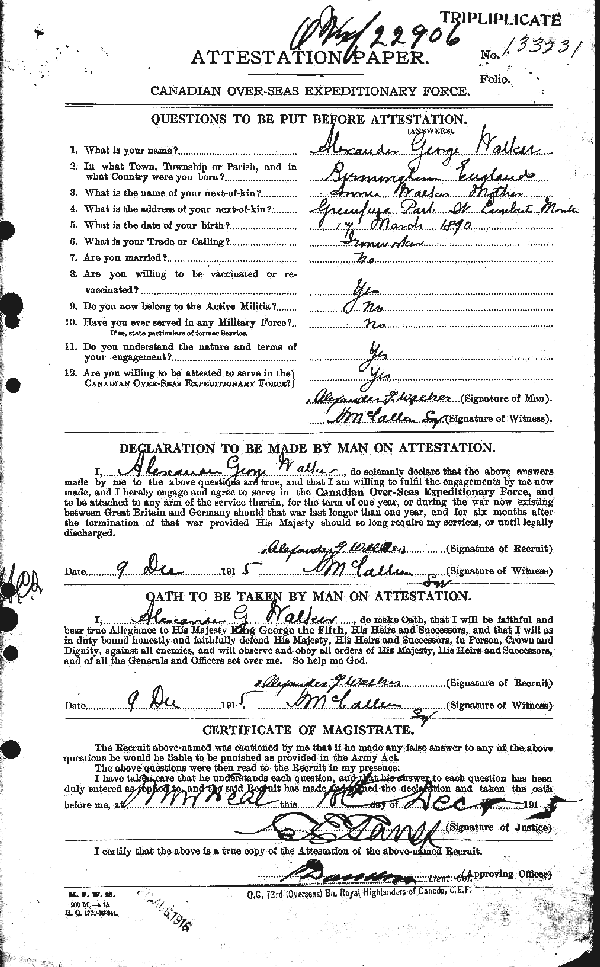 TRIPLIPLICATE
22906
ATTESTATION PAPER.
No. 133231
Folio.
CANADIAN OVER-SEAS EXPEDITIONARY FORCE.
QUESTIONS TO BE PUT BEFORE ATTESTATION.
(ANSWERS)
1. What is your name? Alexander George Walker
2. In what Town, Township or Parish, and in
what Country were you born? Birmingham England
3. What is the name of your next-of-kin? Annie Walker Mother
4. What is the address of your next-of-kin? Park St
5. What is the date of your birth? 17 March 1890
6. What is your Trade or Calling? Ironworker
7. Are you married? No
8. Are you willing to be vaccinated or re-
vaccinated? Yes
9. Do you now belong to the Active Militia? No
10. Have you ever served in any Military Force? No
If so, state particulars of former Service.
11. Do you understand the nature and terms of
your engagement? Yes
12. Are you willing to be attested to serve in the
CANADIAN OVER-SEAS EXPEDITIONARY FORCE? Yes
Alexander G Walker (Signature of Man).
(Signature of Witness).
DECLARATION TO BE MADE BY MAN ON ATTESTATION.
I, Alexander George Walker, do solemnly declare that the above answers
made by me to the above questions are true, and that I am willing to fulfil the engagements by me now
made, and I hereby engage and agree to serve in the Canadian Over-Seas Expeditionary Force, and
to be attached to any arm of the service therein, for the term of one year, or during the war now existing
between Great Britain and Germany should that war last longer than one year, and for six months after
the termination of that war provided His Majesty should so long require my services, or until legally
discharged.
Alexander G Walker (Signature of Recruit)
Date 9 Dec 1915 (Signature of Witness)
OATH TO BE TAKEN BY MAN ON ATTESTATION.
I, Alexander G Walker, do make Oath, that I will be faithful and
bear true Allegiance to His Majesty King George the Fifth, His Heirs and Successors, and that I will as
in duty bound honestly and faithfully defend His Majesty, His Heirs and Successors, in Person, Crown and
Dignity, against all enemies, and will observe and obey all orders of His Majesty, His Heirs and Successors,
and of all the Generals and Officers set over me. So help me God.
Alexander G Walker (Signature of Recruit)
Date 9 Dec 1915 (Signature of Witness)
CERTIFICATE OF MAGISTRATE.
The Recruit above-named was cautioned by me that if he made any false answer to any of the above
questions he would be liable to be punished as provided in the Army Act.
The above questions were then read to the Recruit in my presence.
I have taken care that he understands each question, and that his answer to each question has been
duly entered as replied to, and the said Recruit has made and signed the declaration and taken the oath
before me, at Montreal this day of Dec 1915
(Signature of Justice)
I certify that the above is a true copy of the Attestation of the above-named Recruit.
Lieut. Col. (Approving Officer)
O.C. 73rd (Overseas) Bn. Royal Highlanders of Canada, C.E.F.